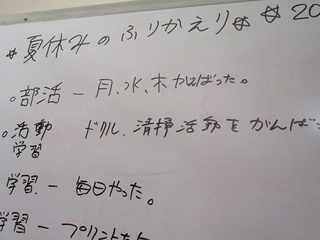 #夏休みのふりかえり# # 20
。部活 ー 月、水、木がんばった。
。活動 ドクル、清掃活動をがんば
学習
学習 ー 毎日やった。
学習 ー プリント